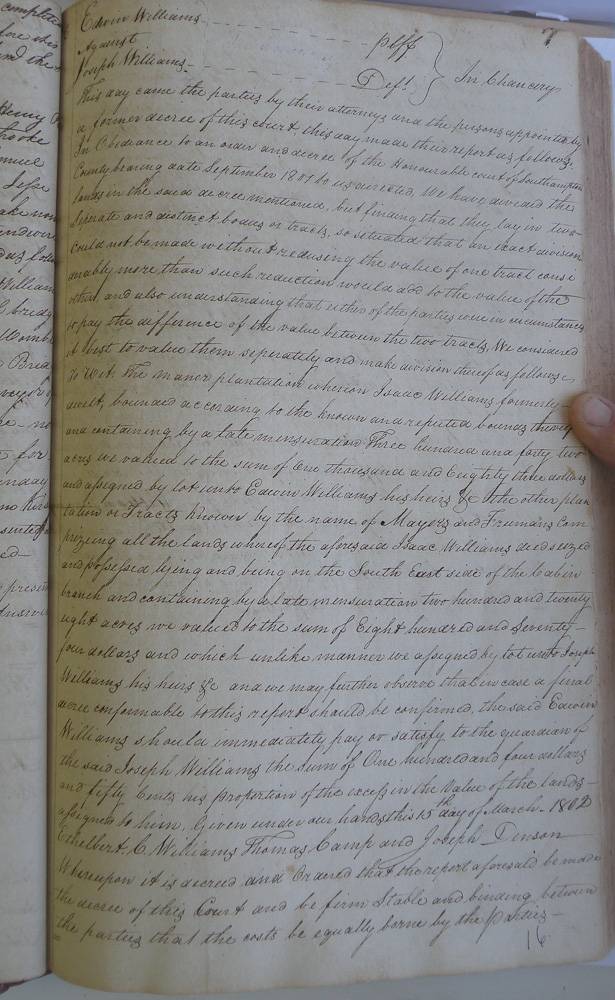 7
Edwin Williams plff
Against
Joseph Williams Deft.
In Chancery
This day came the parties by their attorneys and the persons appointed by
a former decree of this court this day made their report as follows.
In Obediance to an order and decree of the Honourable court of Southampton
County bearing date September 1801 to us directed, We have devided the
lands in the said decree mentioned, but finding that they lay in two
Seperate and distinct bodies or tracts, so situated that an exact division
could not be made without reducing the value of one tract consi
derably more than such reduction would add to the value of the
other, and also understanding that either of the parties were in circumstances
to pay the difference of the value between the two tracts, We considered
it best to value them seperately and make division thereof as follows,
to Wit. The manor plantation whereon Isaac Williams formerly
dwelt, bounded according to the known and reputed bounds thereof
and containing by a late mensuration Three hundred and forty two
acres we valued to the sum of One thousand and Eughty three dollars
and assigned by lot unto Edwin Williams his heirs &c the other plan
tation or Tracts known by the name of Mayers and Frumans Com
prizing all the lands whereof the aforesaid Isaac Williams died seized
and possessed lying and being on the South East side of the Cabin
branch and containing by a late mensuration two hundred and twenty
eight acres we valued to the sum of Eight hundred and Seventy-
four dollars and which unlike manner we assigned by lot unto Joseph
Williams his heirs &c and we may further observe that in case a final
decree conformable to this report should be confirmed, the said Edwin
Williams should immediately pay or satisfy to the guardian of
the said Joseph Williams the sum of One hundred and four dollars
and fifty Cents his proportion of the excess in the Value of the lands-
assigned to him. Given under our hands this 15th day of March 1802
Ethelbert C. Williams Thomas Camp and Joseph Denson
Whereupon it is decreed and Ordered that the report aforesaid be made
the decree of this Court and be firm Stable and binding between
the parties that the costs be equally borne by the Parties-
16